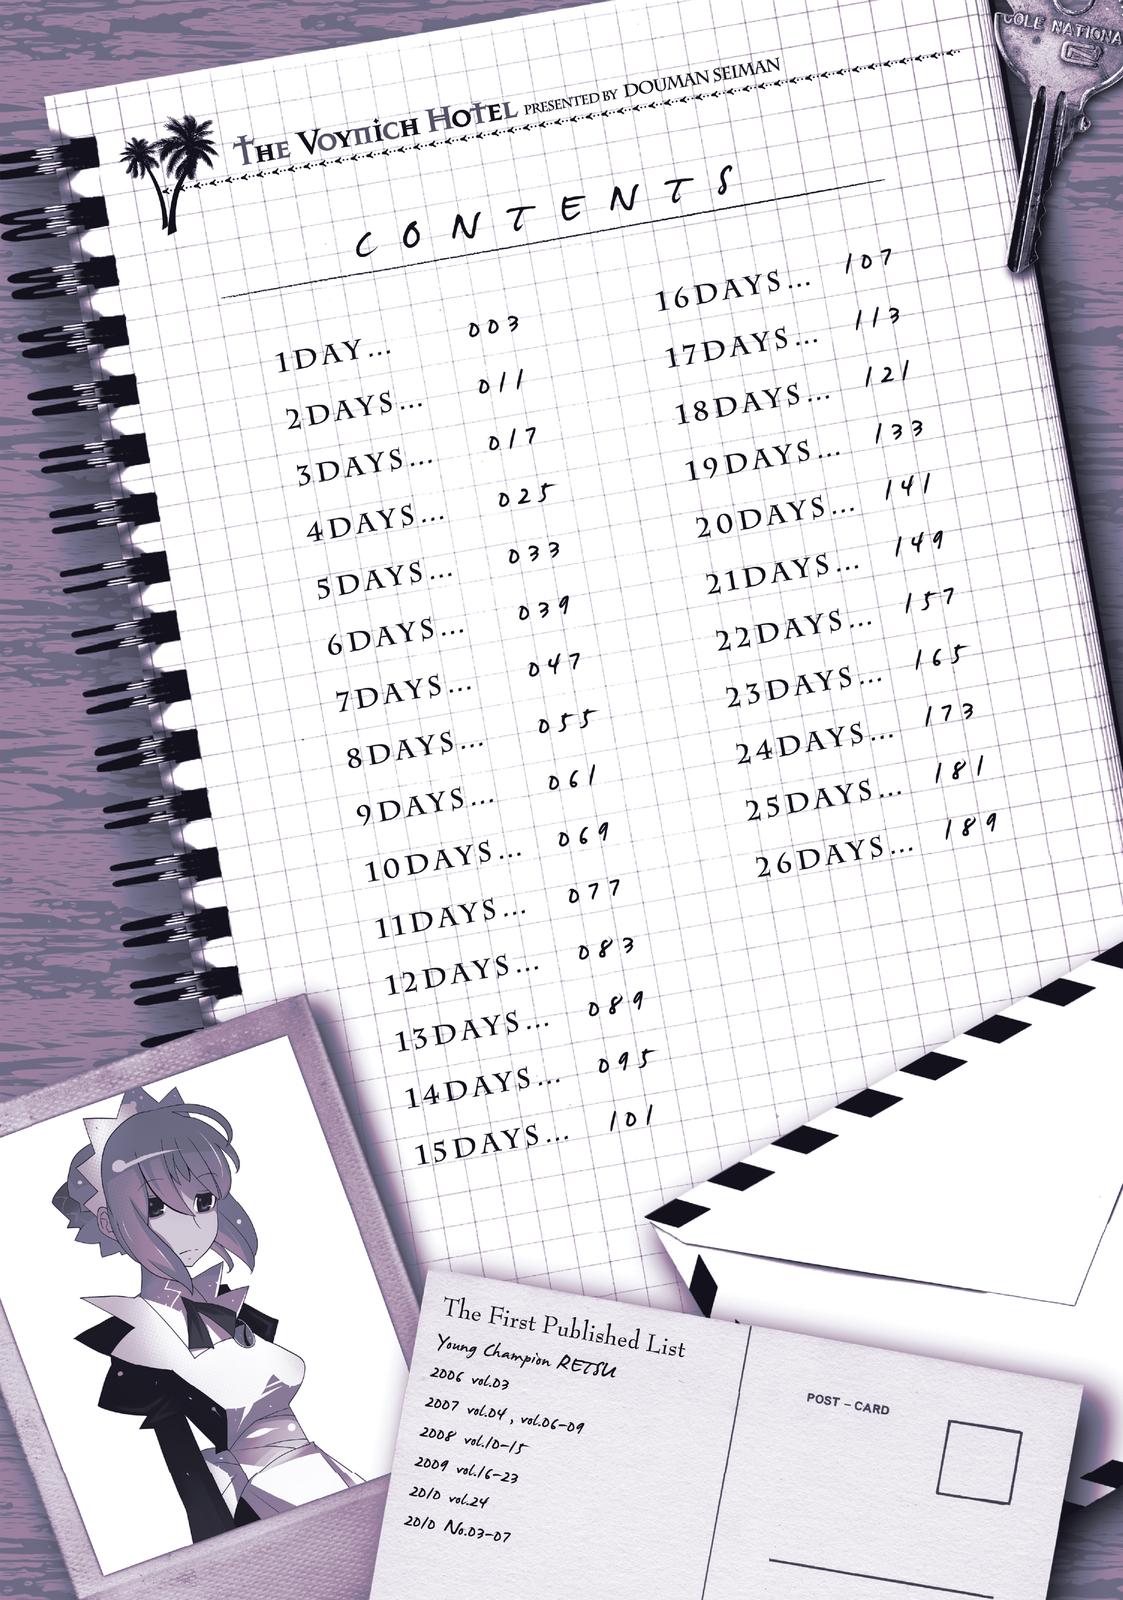 COLE NATIONA
THE VOYNICH HOTEL PRESENTED BY DOUMAN SEIMAN
CONTENTS
1DAY... 003
2DAYS... 011
3DAYS... 017
4DAYS... 025
5DAYS... 033
6DAYS... 039
7DAYS... 047
8DAYS... 055
9DAYS... 061
10DAYS... 069
11DAYS... 077
12DAYS... 083
13DAYS... 089
14DAYS... 095
15DAYS... 101
16DAYS... 107
17DAYS... 113
18DAYS... 121
19DAYS... 133
20DAYS... 141
21DAYS... 149
22DAYS... 157
23DAYS... 165
24DAYS... 173
25DAYS... 181
26DAYS... 189
The First Published List
Young Champion RETSU
2006 vol.03
2007 vol.04, vol.06-09
2008 vol.10-15
2009 vol.16-23
2010 vol.24
2010 No.03-07
POST-CARD